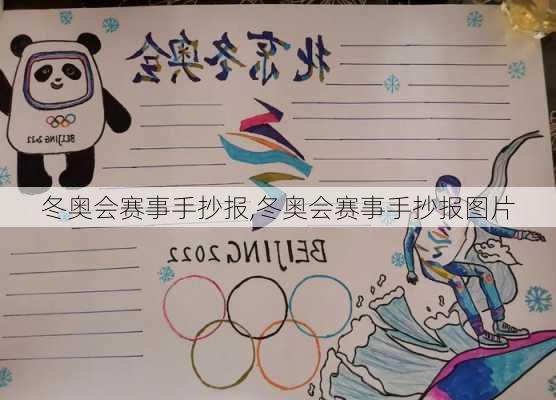 北京冬奥会
BEIJING 2022
冬奥会赛事手抄报,冬奥会赛事手抄报图片
BEIJING 2022